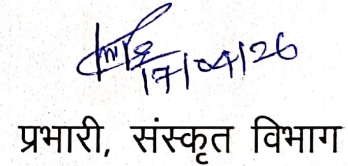 17/04/26
प्रभारी, संस्कृत विभाग